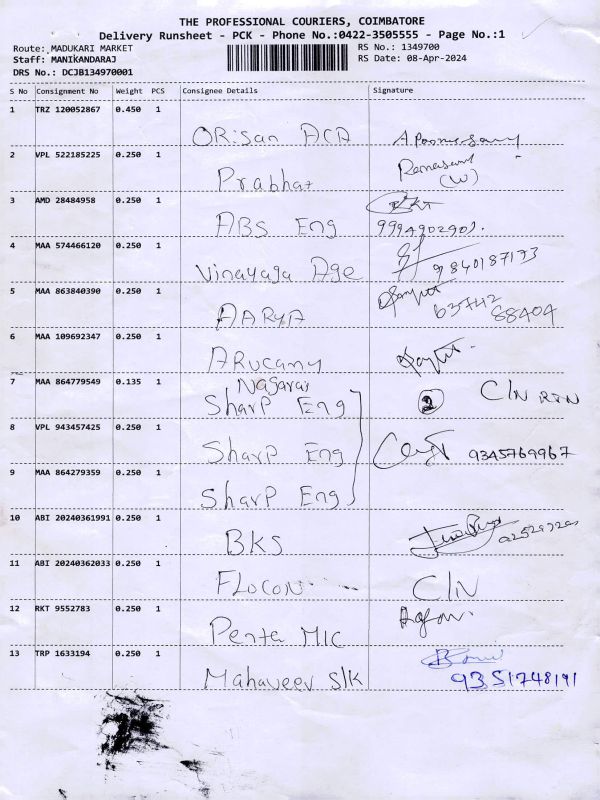 THE PROFESSIONAL COURIERS, COIMBATORE
Delivery Runsheet - PCK - Phone No.:0422-3505555 - Page No.:1
Route: MADUKARI MARKET RS No.: 1349700
Staff: MANIKANDARAJ RS Date: 08-Apr-2024
DRS No.: DCJB134970001
S No Consignment No Weight PCS Consignee Details Signature
1 TRZ 120052867 0.450 1
ORisan ACA
2 VPL 522185225 0.250 1
Prabhat Ramasamy (W)
3 AMD 28484958 0.250 1
ABS Eng 9994902901.
4 MAA 574466120 0.250 1
Vinayaga Age 9840187133
5 MAA 863840390 0.250 1
AARYA 63742 88404
6 MAA 109692347 0.250 1
ARucany
Nagaraj
7 MAA 864779549 0.135 1
Sharp Eng 2 C/N RTN
8 VPL 943457425 0.250 1
Sharp Eng 9345769967
9 MAA 864279359 0.250 1
Sharp Eng
10 ABI 20240361991 0.250 1
BKS
11 ABI 20240362033 0.250 1
FLOCON C/N
12 RKT 9552783 0.250 1
Penta MIC
13 TRP 1633194 0.250 1
Mahaveer S/K 9351748191